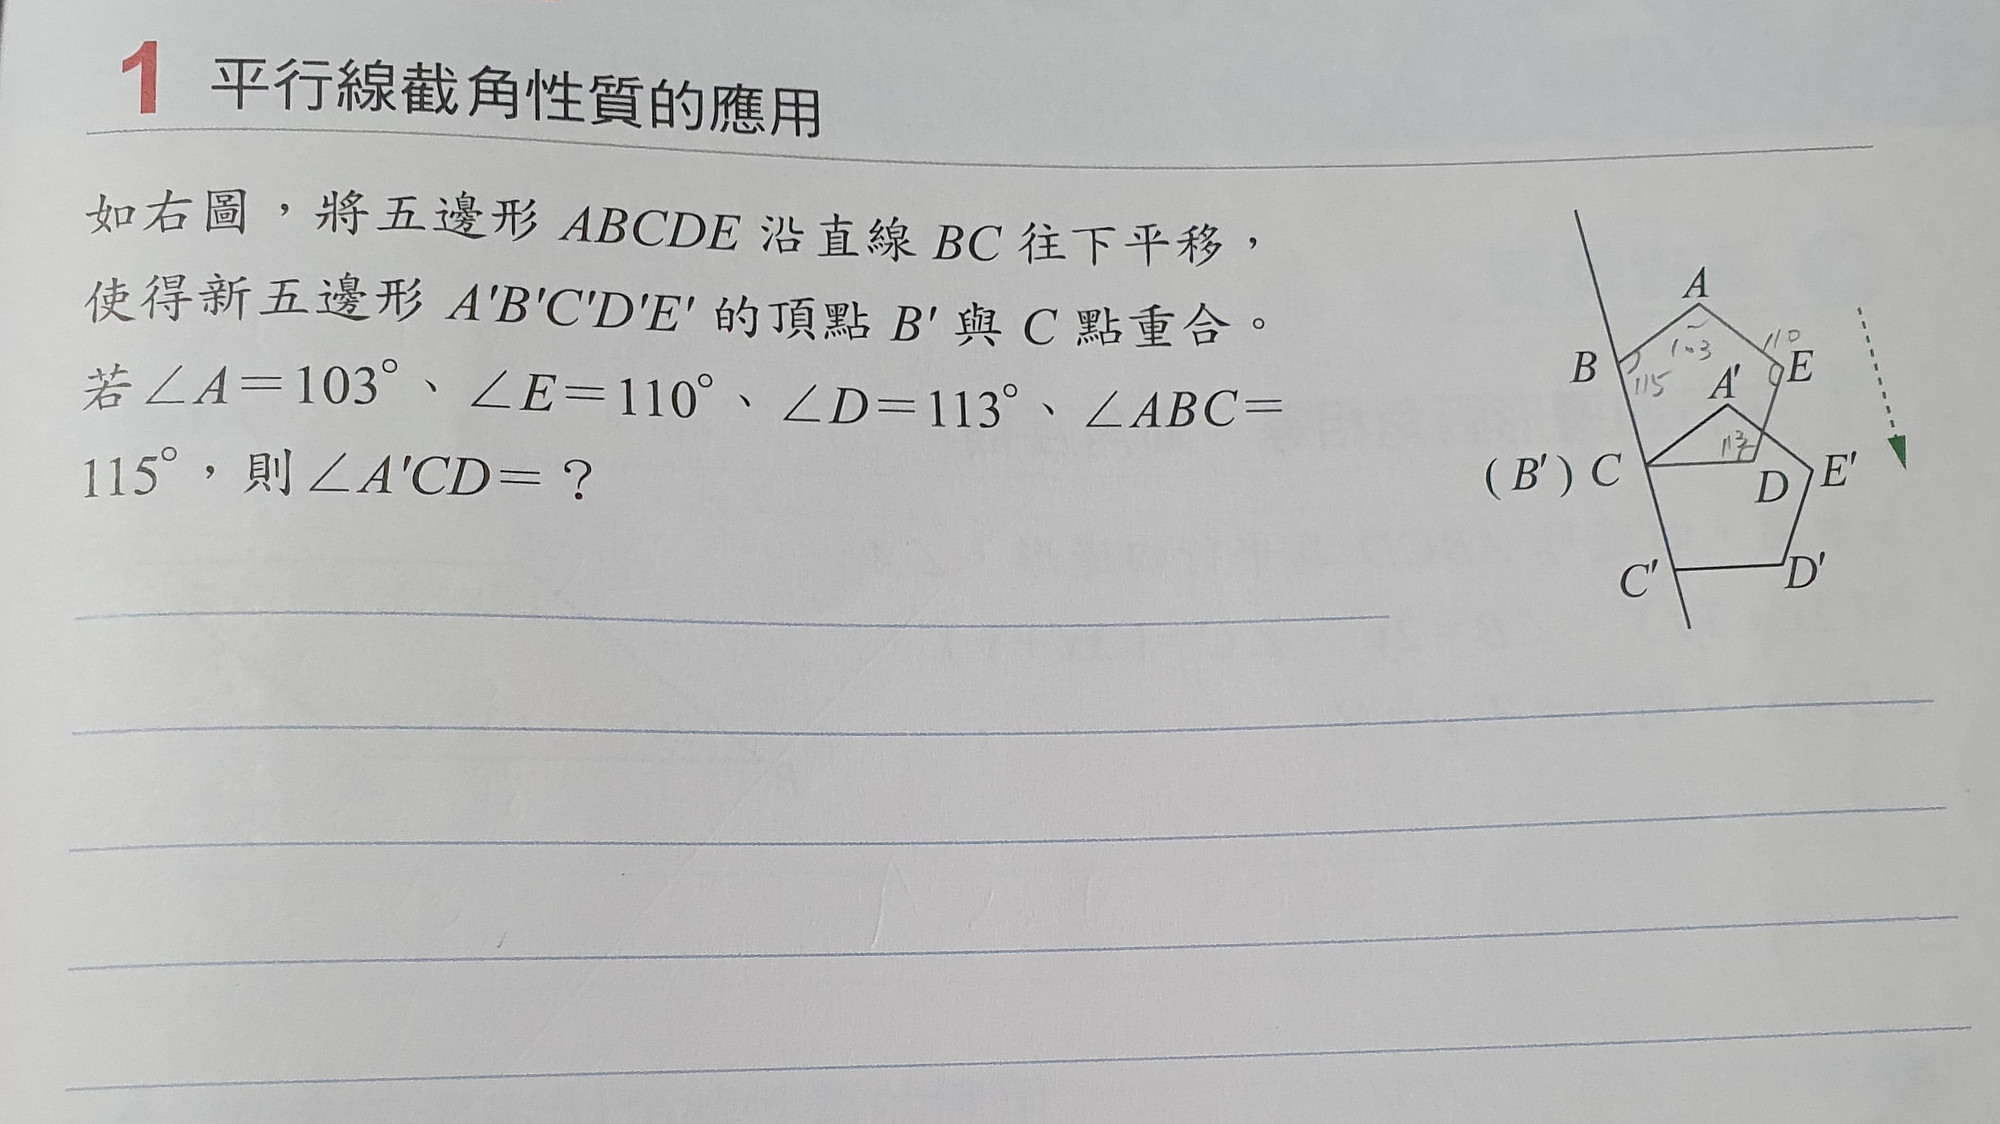 1 平行線截角性質的應用
如右圖，將五邊形 ABCDE 沿直線 BC 往下平移，
使得新五邊形 A'B'C'D'E' 的頂點 B' 與 C 點重合。
若∠A＝103°、∠E＝110°、∠D＝113°、∠ABC＝
115°，則∠A'CD＝？
A
110
103
B
E
115
A'
113
(B') C
D
E'
C'
D'